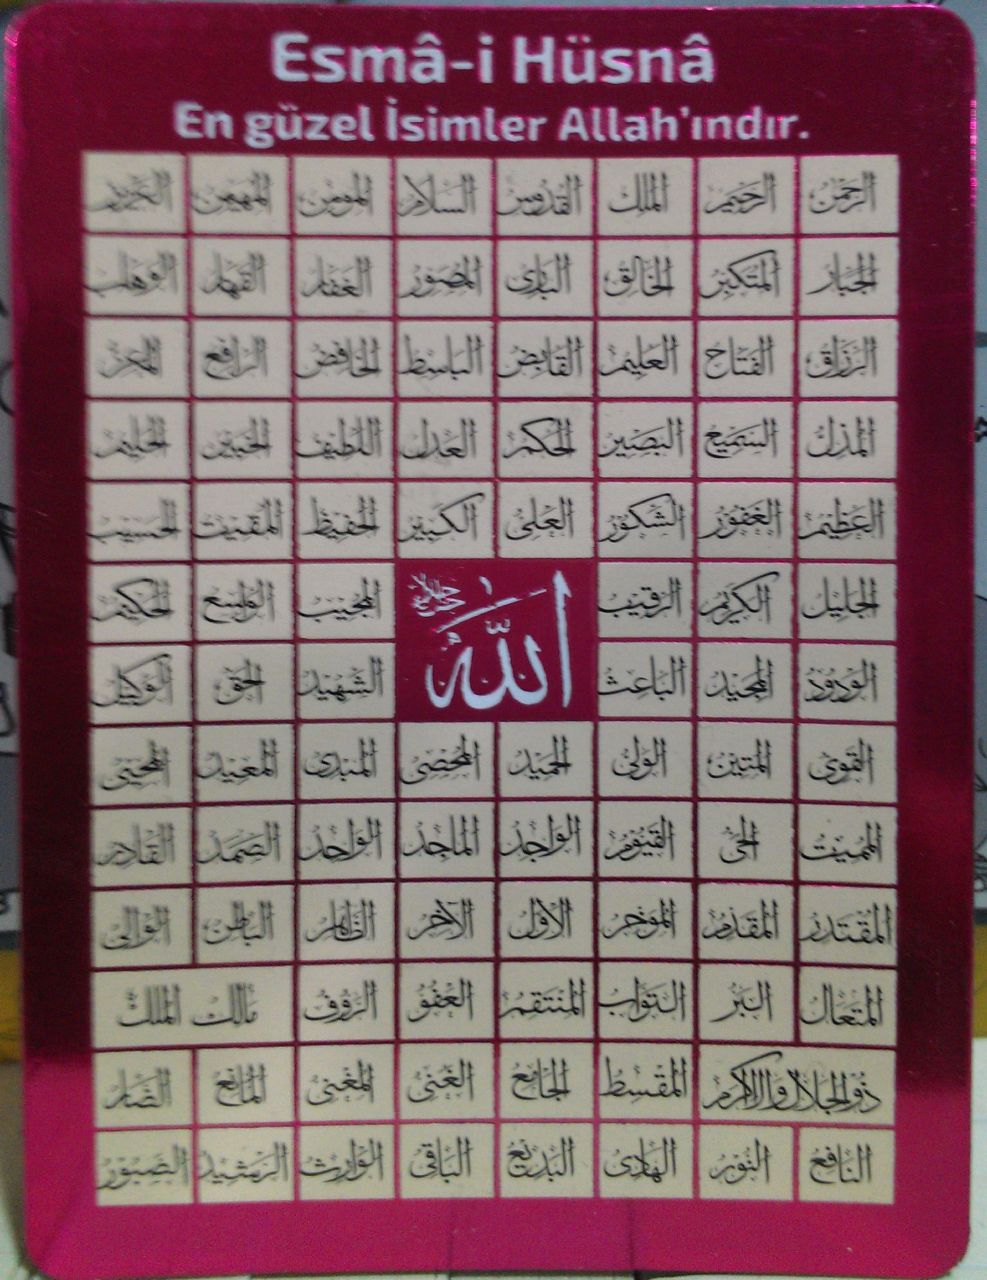 Esmâ-i Hüsnâ
En güzel İsimler Allah'ındır.
الرحمن الرحيم الملك القدوس السلام المؤمن المهيمن العزيز
الجبار المتكبر الخالق البارئ المصور الغفار القهار الوهاب
الرزاق الفتاح العليم القابض الباسط الخافض الرافع المعز
المذل السميع البصير الحكم العدل اللطيف الخبير الحليم
العظيم الغفور الشكور العلى الكبير الحفيظ المقيت الحسيب
الجليل الكريم الرقيب المجيب الواسع الحكيم
الله جل جلاله
الودود المجيد الباعث الشهيد الحق الوكيل
القوى المتين الولى الحميد المحصى المبدئ المعيد المحيى
المميت الحى القيوم الواجد الماجد الواحد الصمد القادر
المقتدر المقدم المؤخر الاول الآخر الظاهر الباطن الوالى
المتعال البر التواب المنتقم العفو الرؤف مالك الملك
ذو الجلال والاكرام المقسط الجامع الغنى المغنى المانع الضار
النافع النور الهادى البديع الباقى الوارث الرشيد الصبور